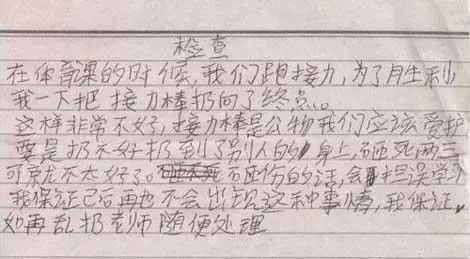 检查
在体育课的时候,我们跑接力,为了月生利
我一下把 接力棒扔向了终点。
这样非常不好,接力棒是公物我们应该爱护
要是扔不好扔到了别人的身上,砸死两三
可就不太好了。砸伤的话,会担误学习
我保证已后再也不会出现这种事情,我保证。
如再乱扔老师随便处理